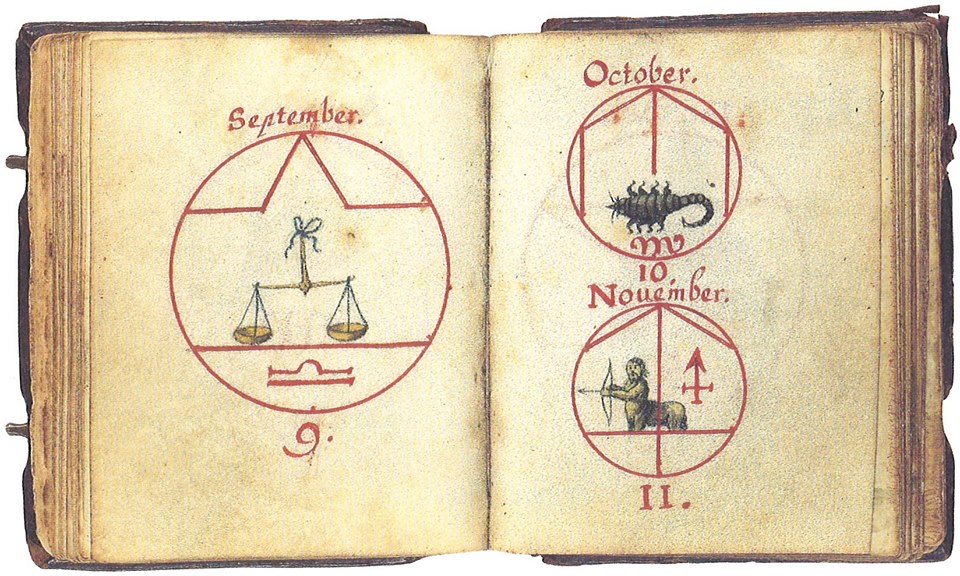 September.
♎
9.
October.
♏
10
November.
♐
11.